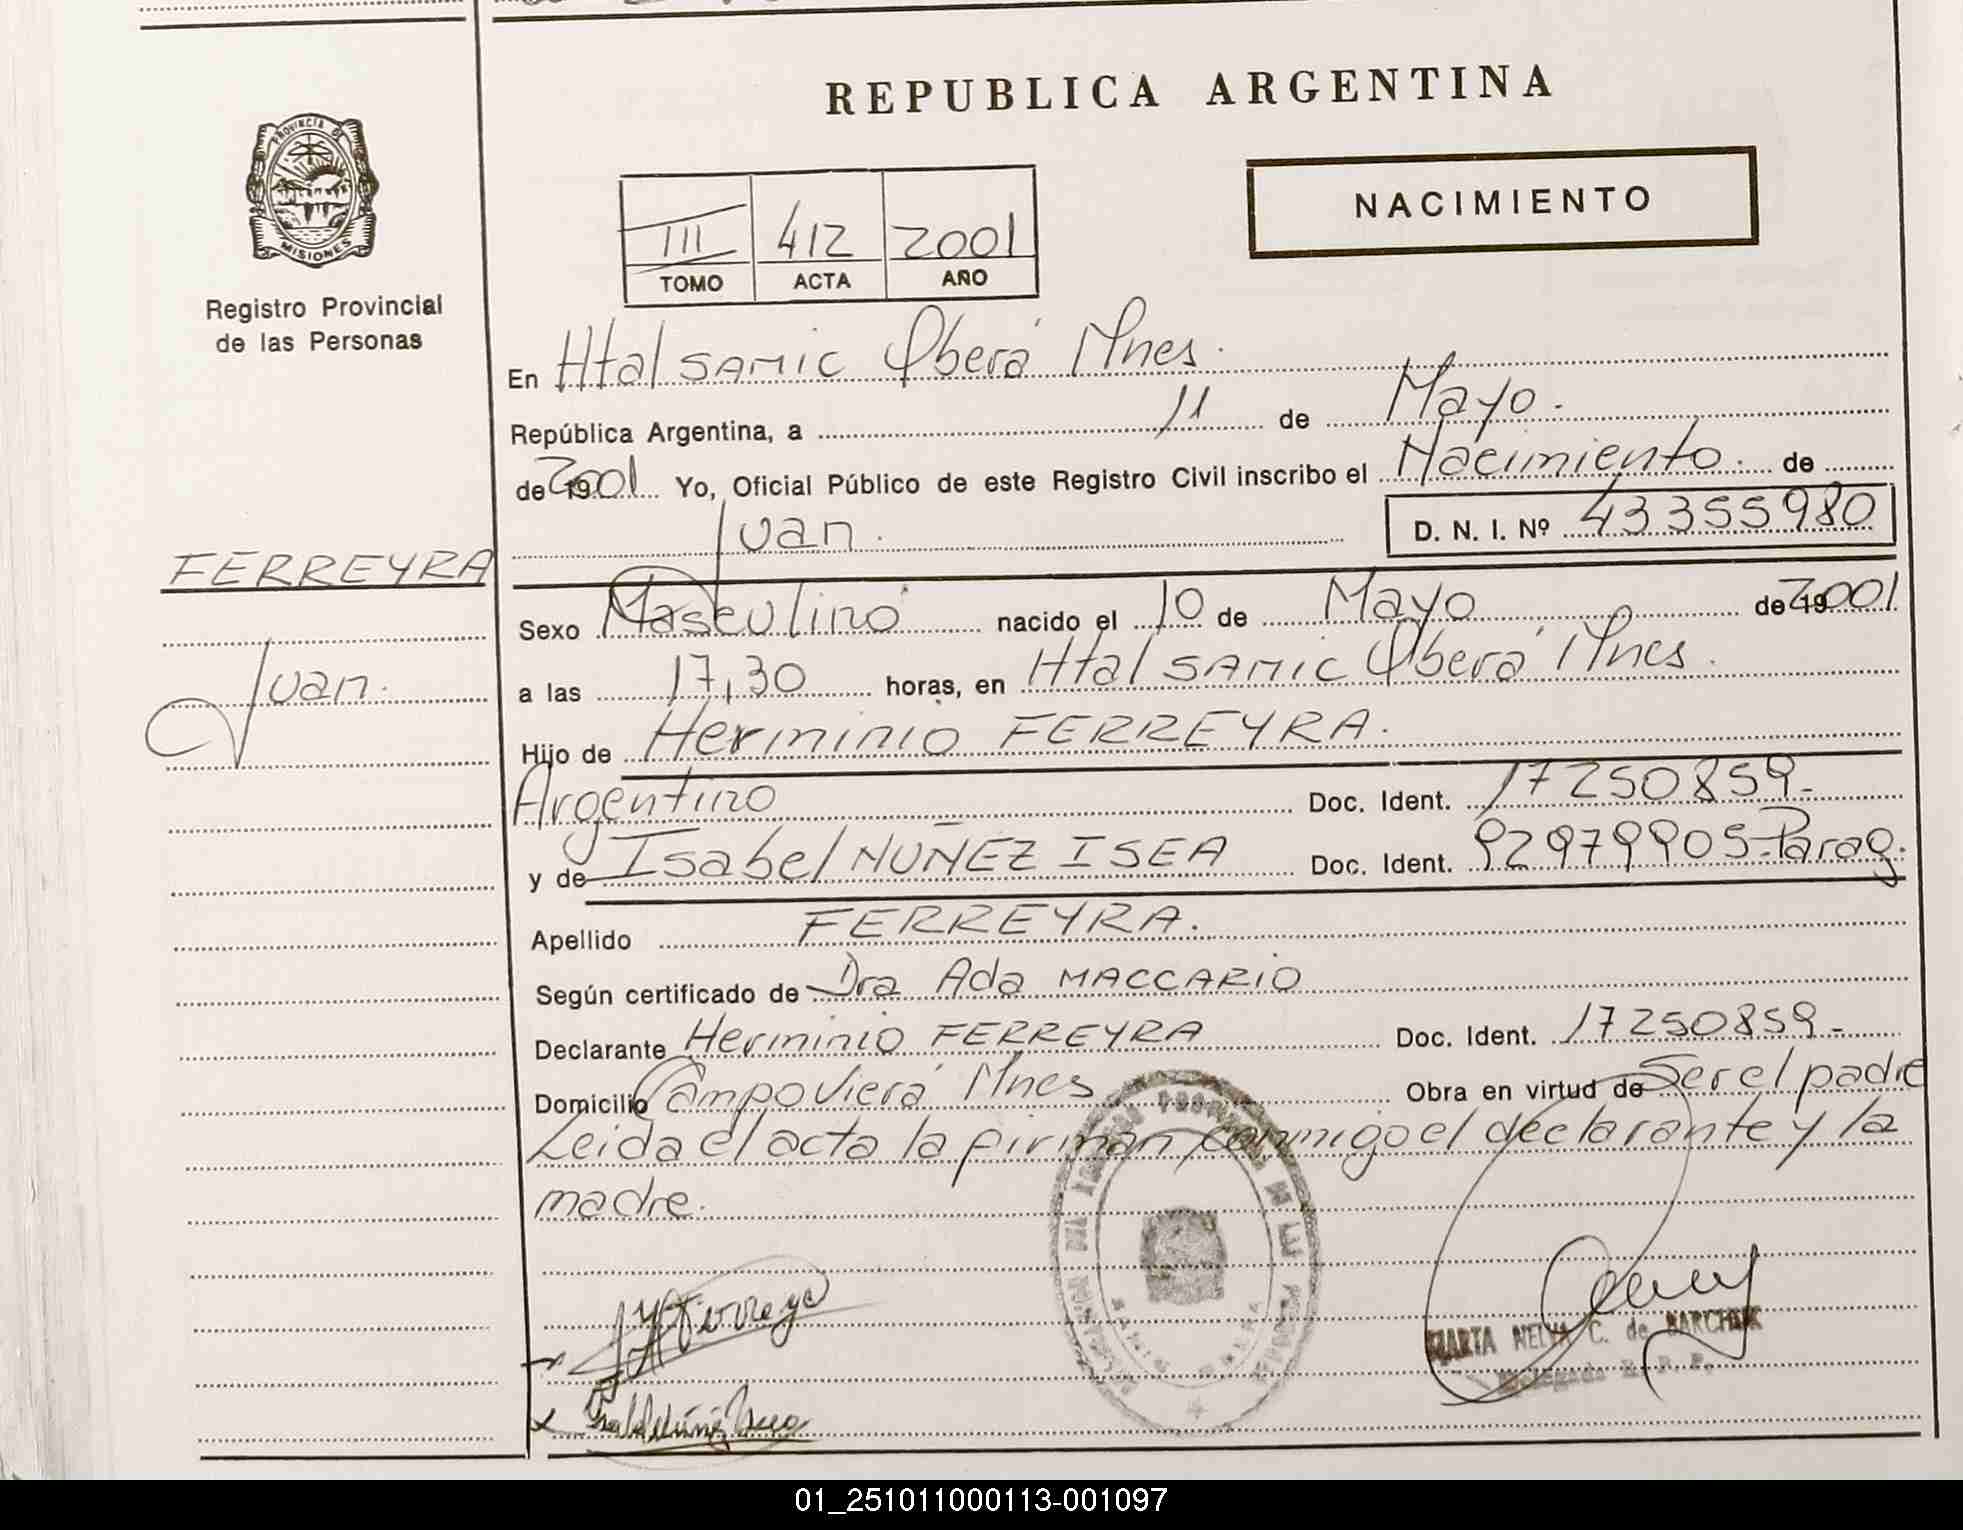 REPUBLICA ARGENTINA
PROVINCIA DE
MISIONES
Registro Provincial
de las Personas
NACIMIENTO
III 412 2001
TOMO ACTA AÑO
En Htal SAMIC Oberá Mnes.
República Argentina, a 11 de Mayo.
de 2001 Yo, Oficial Público de este Registro Civil inscribo el Nacimiento. de
Juan.
D. N. I. Nº 43355980
FERREYRA
Juan.
Sexo Masculino nacido el 10 de Mayo de 2001
a las 17,30 horas, en Htal SAMIC Oberá Mnes.
Hijo de Herminio FERREYRA.
Argentino Doc. Ident. 17250859-
y de Isabel NUÑEZ ISEA Doc. Ident. 92979905-Parag.
Apellido FERREYRA.
Según certificado de Dra Ada MACCARIO
Declarante Herminio FERREYRA Doc. Ident. 17250859-
Domicilio Campo Viera Mnes Obra en virtud de Ser el padre
Leida el acta la firman conmigo el declarante y la
madre.
MARTA NELVA C. de BARCHUK
Delegada R. P. P.
01_251011000113-001097